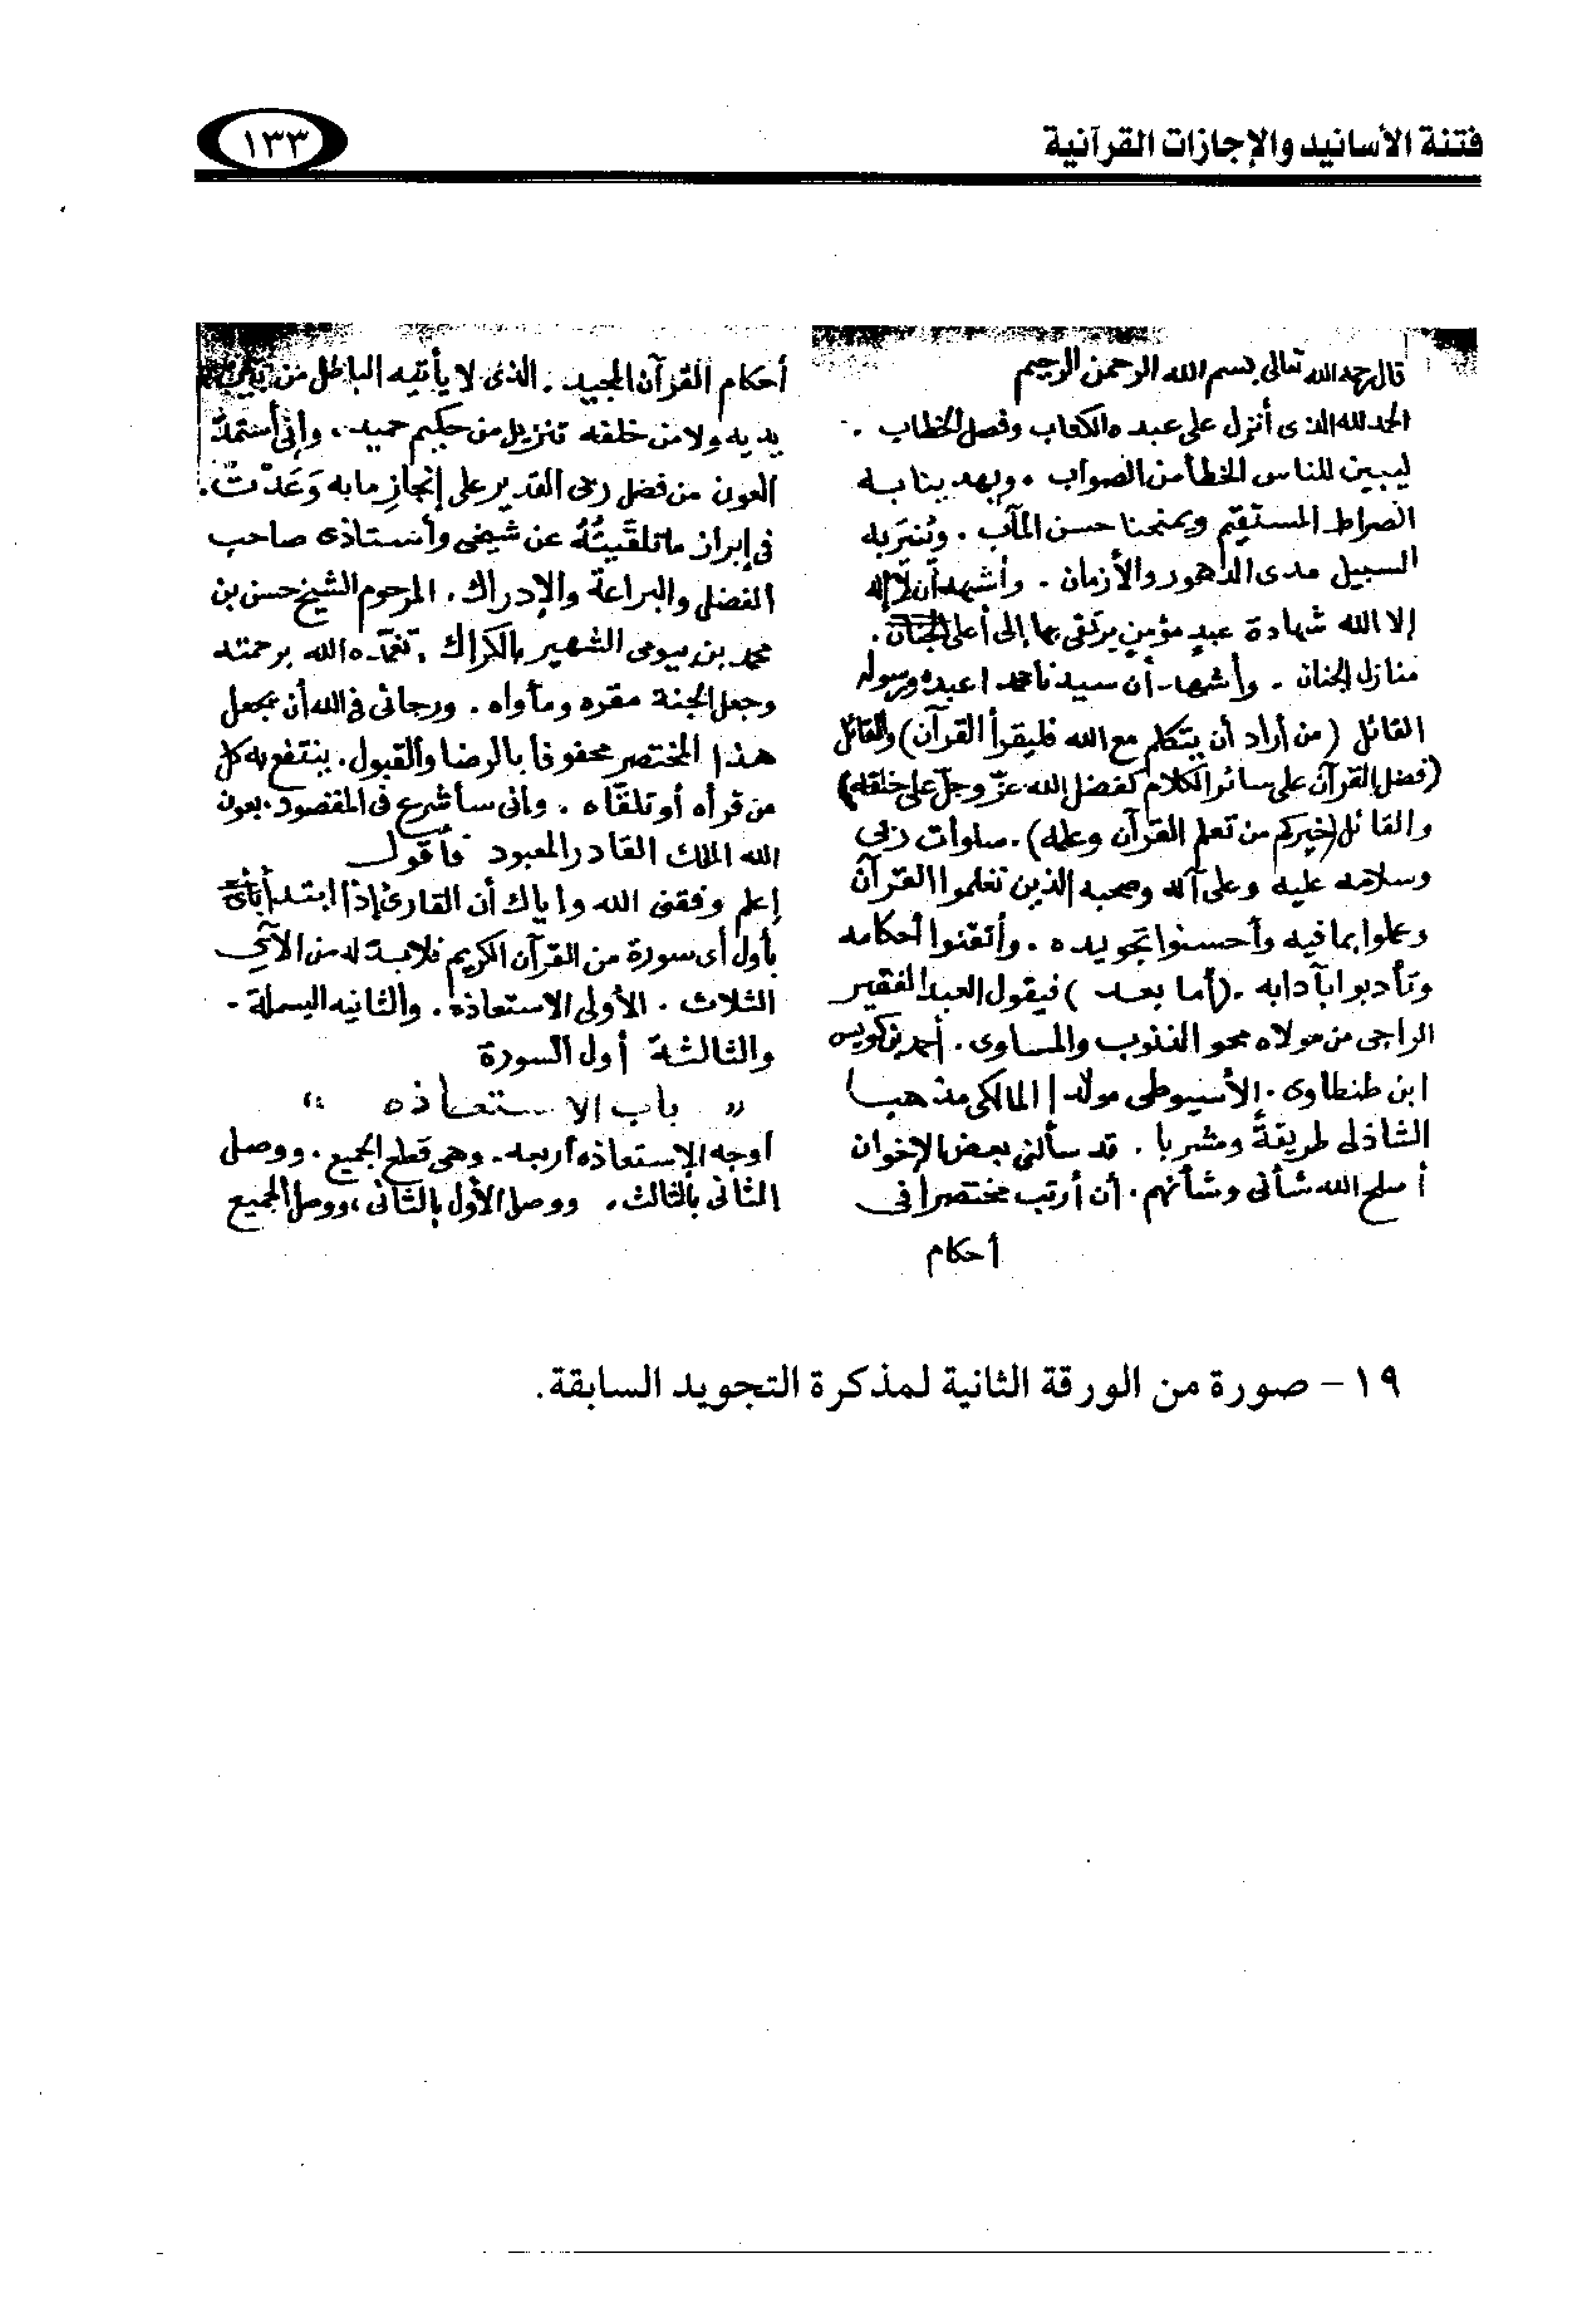 فتنة الأسانيد والإجازات القرآنية
١٣٣
قال رحمه الله تعالى بسم الله الرحمن الرحيم
الحمد لله الذى أنزل على عبده الكتاب وفصل الخطاب .
ليبين للناس الخطأ من الصواب . ويهدينا به
الصراط المستقيم ويمنحنا حسن المآب . وننير به
السبيل مدى الدهور والأزمان . وأشهد أن لا إله
إلا الله شهادة عبدٍ مؤمنٍ يرتقى بها إلى أعلى
منازل الجنان . وأشهد أن سيدنا محمدا عبده ورسوله
القائل (من أراد أن يتكلم مع الله فليقرأ القرآن) والقائل
(فضل القرآن على سائر الكلام كفضل الله عزّ وجلّ على خلقه)
والقائل (خيركم من تعلم القرآن وعلمه) . صلوات ربى
وسلامه عليه وعلى آله وصحبه الذين تعلموا القرآن
وعملوا بما فيه وأحسنوا تجويده . وأتقنوا أحكامه
وتأدبوا بآدابه . (أما بعد) فيقول العبد الفقير
الراجى من مولاه محو الذنوب والمساوى . أحمد بن كويس
ابن طنطاوى . الأسيوطى مولدا المالكى مذهبا
الشاذلى طريقةً ومشربا . قد سألنى بعض الإخوان
أصلح الله شأنى وشأنهم . أن أرتب مختصرا فى
أحكام
أحكام القرآن المجيد . الذى لا يأتيه الباطل من بين
يديه ولا من خلفه تنزيل من حكيم حميد . وإنى أستمدّ
العون من فضل ربى القدير على إنجاز ما به وَعَدْتُ .
فى إبراز ما تلقَّيتُهُ عن شيخى وأستاذى صاحب
الفضل والبراعة والإدراك . المرحوم الشيخ حسن بن
محمد بن بيومى الشهير بالكراك . تغمّده الله برحمته
وجعل الجنة مقره ومأواه . ورجائى فى الله أن يجعل
هذا المختصر محفوفا بالرضا والقبول . ينتفع به كل
من قرأه أو تلقّاه . وأنى سأشرع فى المقصود . بعون
الله الملك القادر المعبود فأقول
إعلم وفقنى الله واياك أن القارئ إذا ابتدأ
بأول أى سورة من القرآن الكريم فلابد له من الآتى
الثلاث . الأولى الاستعاذه . والثانيه البسملة .
والثالثة أول السورة
" باب الاستعاذه "
أوجه الاستعاذه أربعه . وهى قطع الجميع . ووصل
الثانى بالثالث . ووصل الأول بالثانى ، ووصل الجميع
١٩ - صورة من الورقة الثانية لمذكرة التجويد السابقة.